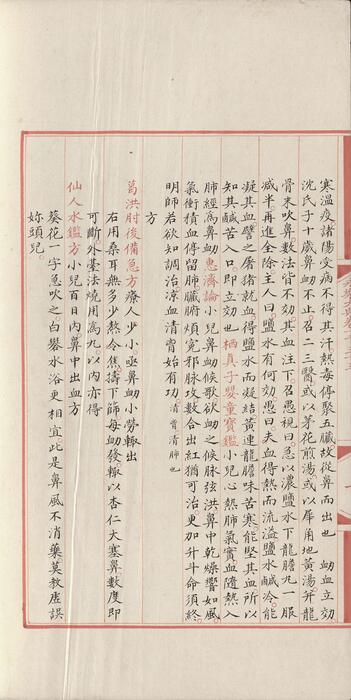 寒溫疫諸陽受病不得其汗熱毒停聚五臟故從鼻而出也 衄血立効
沈氏子十歲鼻衄不止召二三醫或以茅花煎湯或以犀角地黃湯并龍
骨末吹鼻數法皆不効其血注下召愚視曰急以濃鹽水下龍膽丸一服
減半再進全除主人曰鹽水有何効愚曰夫血得熱而流溢鹽水鹹冷能
凝其血譬之屠猪就血得鹽而凝結黃連龍膽味苦寒能堅其血所以
知其鹹苦入口即立効也栖真子嬰童寶鑑小兒心熱肺氣實血隨熱入
肺經為鼻衄惠濟論小兒鼻衄候歌欲衄之候脉弦洪鼻中乾燥響如風
氣衝積血停留肺臟腑煩寃邪脉攻數合出紅猶可治更加升斗命須終
明師若欲知調治涼血清胃始有功清胃清肺也
方
葛洪肘後備急方療人少小亟鼻衄小勞輒出
右用桑耳無多少熬令焦擣下篩每衄發輒以杏仁大塞鼻數度即
可斷外臺法燒用為丸以内亦得
仙人水鑑方小兒百日内鼻中出血方
葵花一字急吹之白礬水浴更相宜此是鼻風不消藥莫教虛誤
妳頭兒